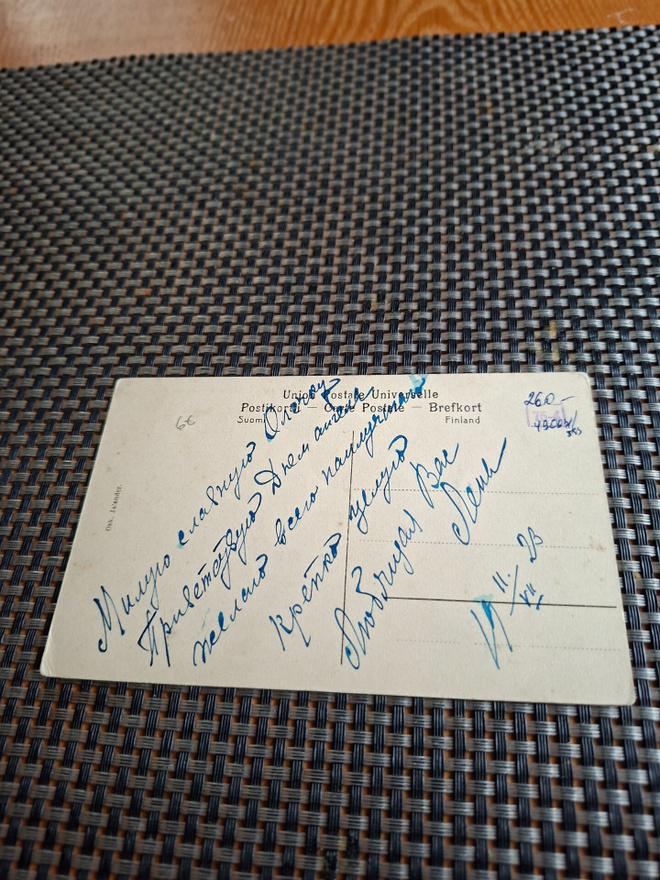 Union Postale Universelle
Postikortti — Carte Postale — Brefkort
Suomi Finland
6€
260.-
Милую славную Олечку
Приветствую Днем ангела
желаю всего наилучшаго
крепко целую
Любящая Вас
Лена
19 11/VII 23